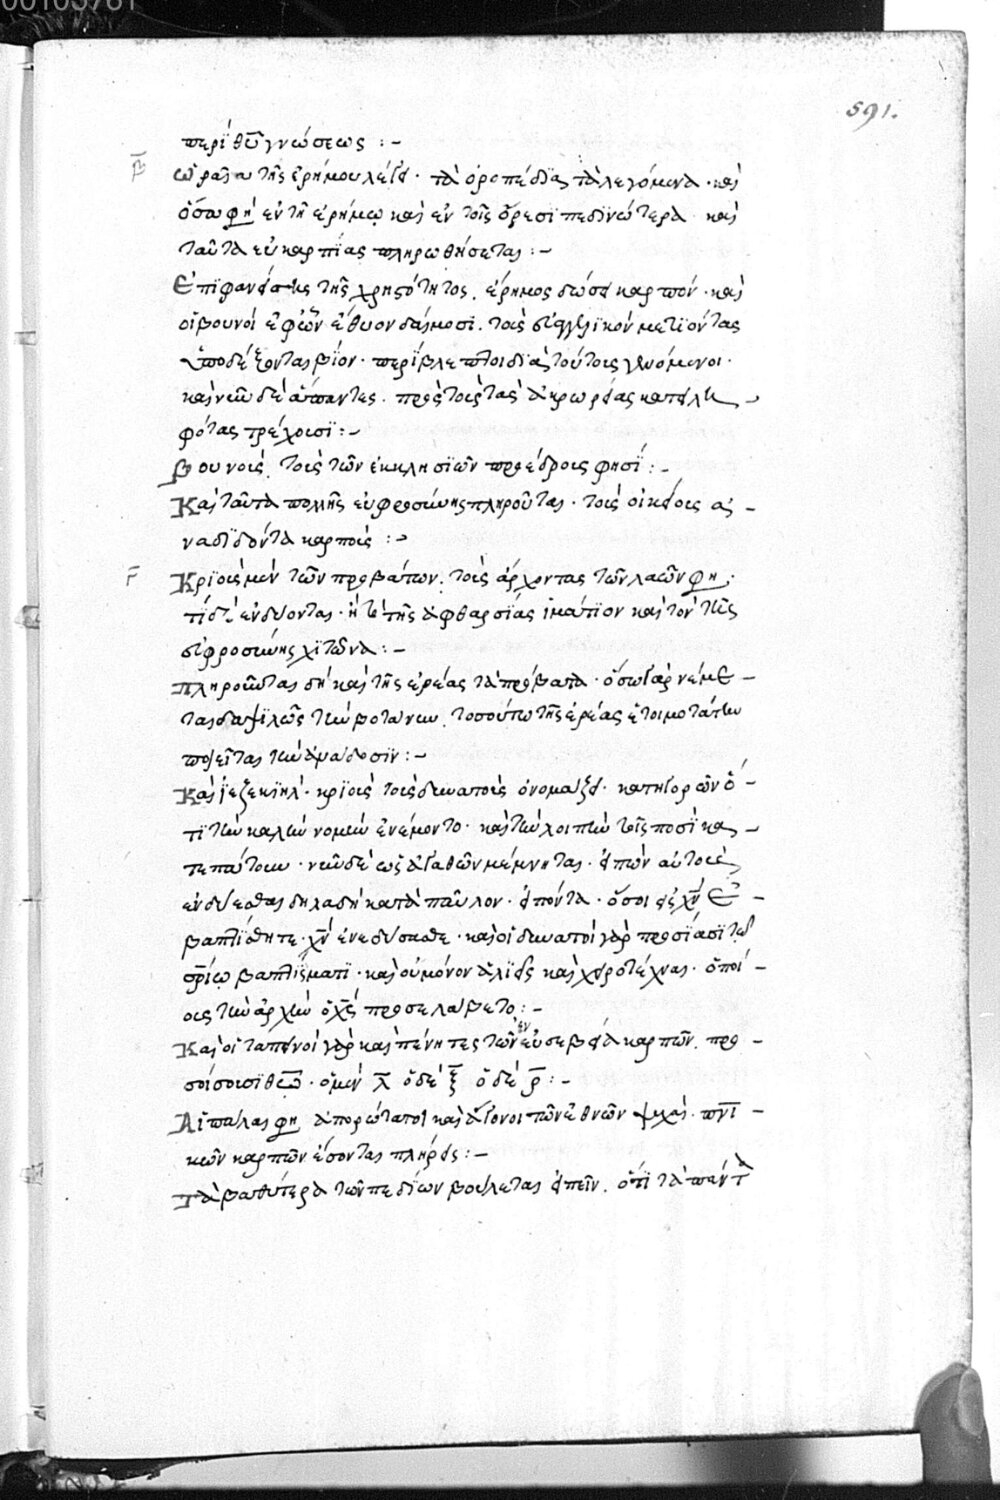 00103781
591.
περὶ θ̅υ̅ γνώσεως :-
β̅
ὡραῖα τῆς ἐρήμου λέγει · τὰ ὀροπέδια τὰ λεγόμενα · καὶ
ὅσα φη ἐν τῇ ἐρήμῳ καὶ ἐν τοῖς ὄρεσι πεδινώτερα · καὶ
ταῦτα εὐκαρπίας πληρωθήσεται :-
Ἐπιφανείσης τῆς χρηστότητος · ἔρημος δώσει καρπόν · καὶ
οἱ βουνοὶ ἐφ' ὧν ἔθυον δαίμοσι · τοὺς εὐαγγελικὸν μετιόντας
ὑποδέξονται βίον · περίβλεπτοι διὰ τούτους γενόμενοι ·
καὶ νῦν δὲ ἅπαντες · πρὸς τοὺς τὰς ἀκρωρείας κατειλη
φότας τρέχουσι :-
Βουνοὺς · τοὺς τῶν ἐκκλησιῶν προέδρους φησί :-
Καὶ ταῦτα πολλῆς εὐφροσύνης πληροῦται · τοὺς οἰκείους ἀ-
ναδιδόντα καρπούς :-
γ̅
Κριοὺς μὲν τῶν προβάτων · τοὺς ἄρχοντας τῶν λαῶν φη ·
τί δὲ ἐνδύονται · ἢ τὸ τῆς ἀφθαρσίας ἱμάτιον καὶ τὸν τῆς
εὐφροσύνης χιτῶνα :-
πληροῦται δὴ καὶ τῆς ἐρέας τὰ πρόβατα · ὅσῳ γὰρ νέμε-
ται δαψιλῶς τὴν βοτάνην · τοσούτῳ τῆς ἐρέας ἑτοιμοτάτην
ποιεῖται τὴν ἀνάδοσιν :-
Καὶ ἰεζεκιὴλ · κριοὺς τοὺς δυνατοὺς ὀνομάζει · κατηγορῶν ὅ-
τι τὴν καλὴν νομὴν ἐνέμοντο · καὶ τὴν λοιπὴν τοῖς ποσὶ κα-
τεπάτουν · νῦν δὲ ὡς ἀγαθῶν μέμνηται · εἰπὼν αὐτοὺς
ἐνδύεσθαι δηλαδὴ κατὰ παῦλον · εἰπόντα · ὅσοι εἰς χ̅ν̅ ἐ-
βαπτίσθητε · χ̅ν̅ ἐνεδύσασθε · καὶ οἱ δυνατοὶ γὰρ προσίασι τῷ
σ̅ρίῳ βαπτίσματι · καὶ οὐ μόνον ἁλιεῖς καὶ χειροτέχναι · ὁποί-
ους τὴν ἀρχὴν ὁ χ̅ς̅ προσελάβετο :-
Καὶ οἱ ταπεινοὶ γὰρ καὶ πένητες τῶν ἐν εὐσεβείᾳ καρπῶν · προ-
σοίσουσι θ̅ω̅ · ὁ μὲν λ̅ ὁ δὲ ξ̅ ὁ δὲ ρ̅ :-
Αἱ πάλαι φη ἀπορώταται καὶ ἄγονοι τῶν ἐθνῶν ψυχαὶ · π̅ν̅ι̅-
κῶν καρπῶν ἔσονται πλήρεις :-
τὰ βαθύτερα τῶν πεδίων βούλεται εἰπεῖν · ὅτι τὰ πάντα